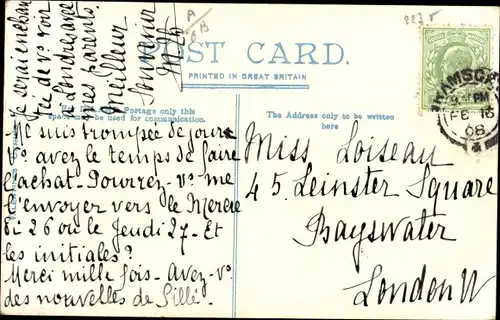 POST CARD.
PRINTED IN GREAT BRITAIN
Postage only this
space may be used for communication.
The Address only to be written
here
Je me suis trompée de jour
Vs avez le temps de faire
l'achat - Pourrez-vs me
l'envoyer vers le Mercre
di 26 ou le Jeudi 27 - Et
les initiales?
Merci mille fois - Avez-vs
des nouvelles de Sillé -
Je serai enchan
tée de vs voir
à Londres avec
mes parents.
Meilleur
Souvenir
Miss Loiseau
45. Leinster Square
Bayswater
London W
A
B
RAMSG
PM
FE 16
08